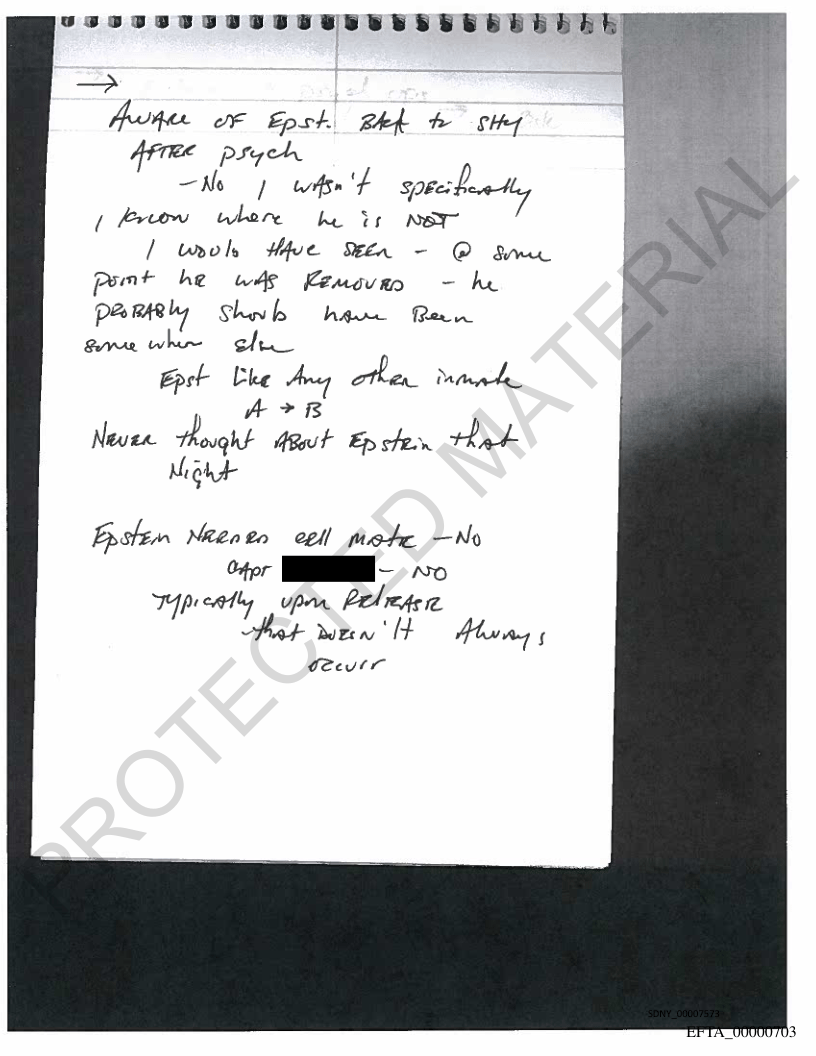 →
AWARE OF Epst. BACK to SHU
AFTER psych
- No I WASN'T specifically
I know where he is NOT
I would HAVE SEEN - @ some
point he WAS REMOVED - he
PROBABly should have Been
some where else
Epst Like Any other inmate
A → B
NEVER thought ABout Epstein that
Night
Epstein NEEDED cell mate - No
CAPT - NO
TYPICAlly upon RELEASE
- that DOESN'T Always
occur
PROTECTED MATERIAL
SDNY_00007573
EFTA_00000703